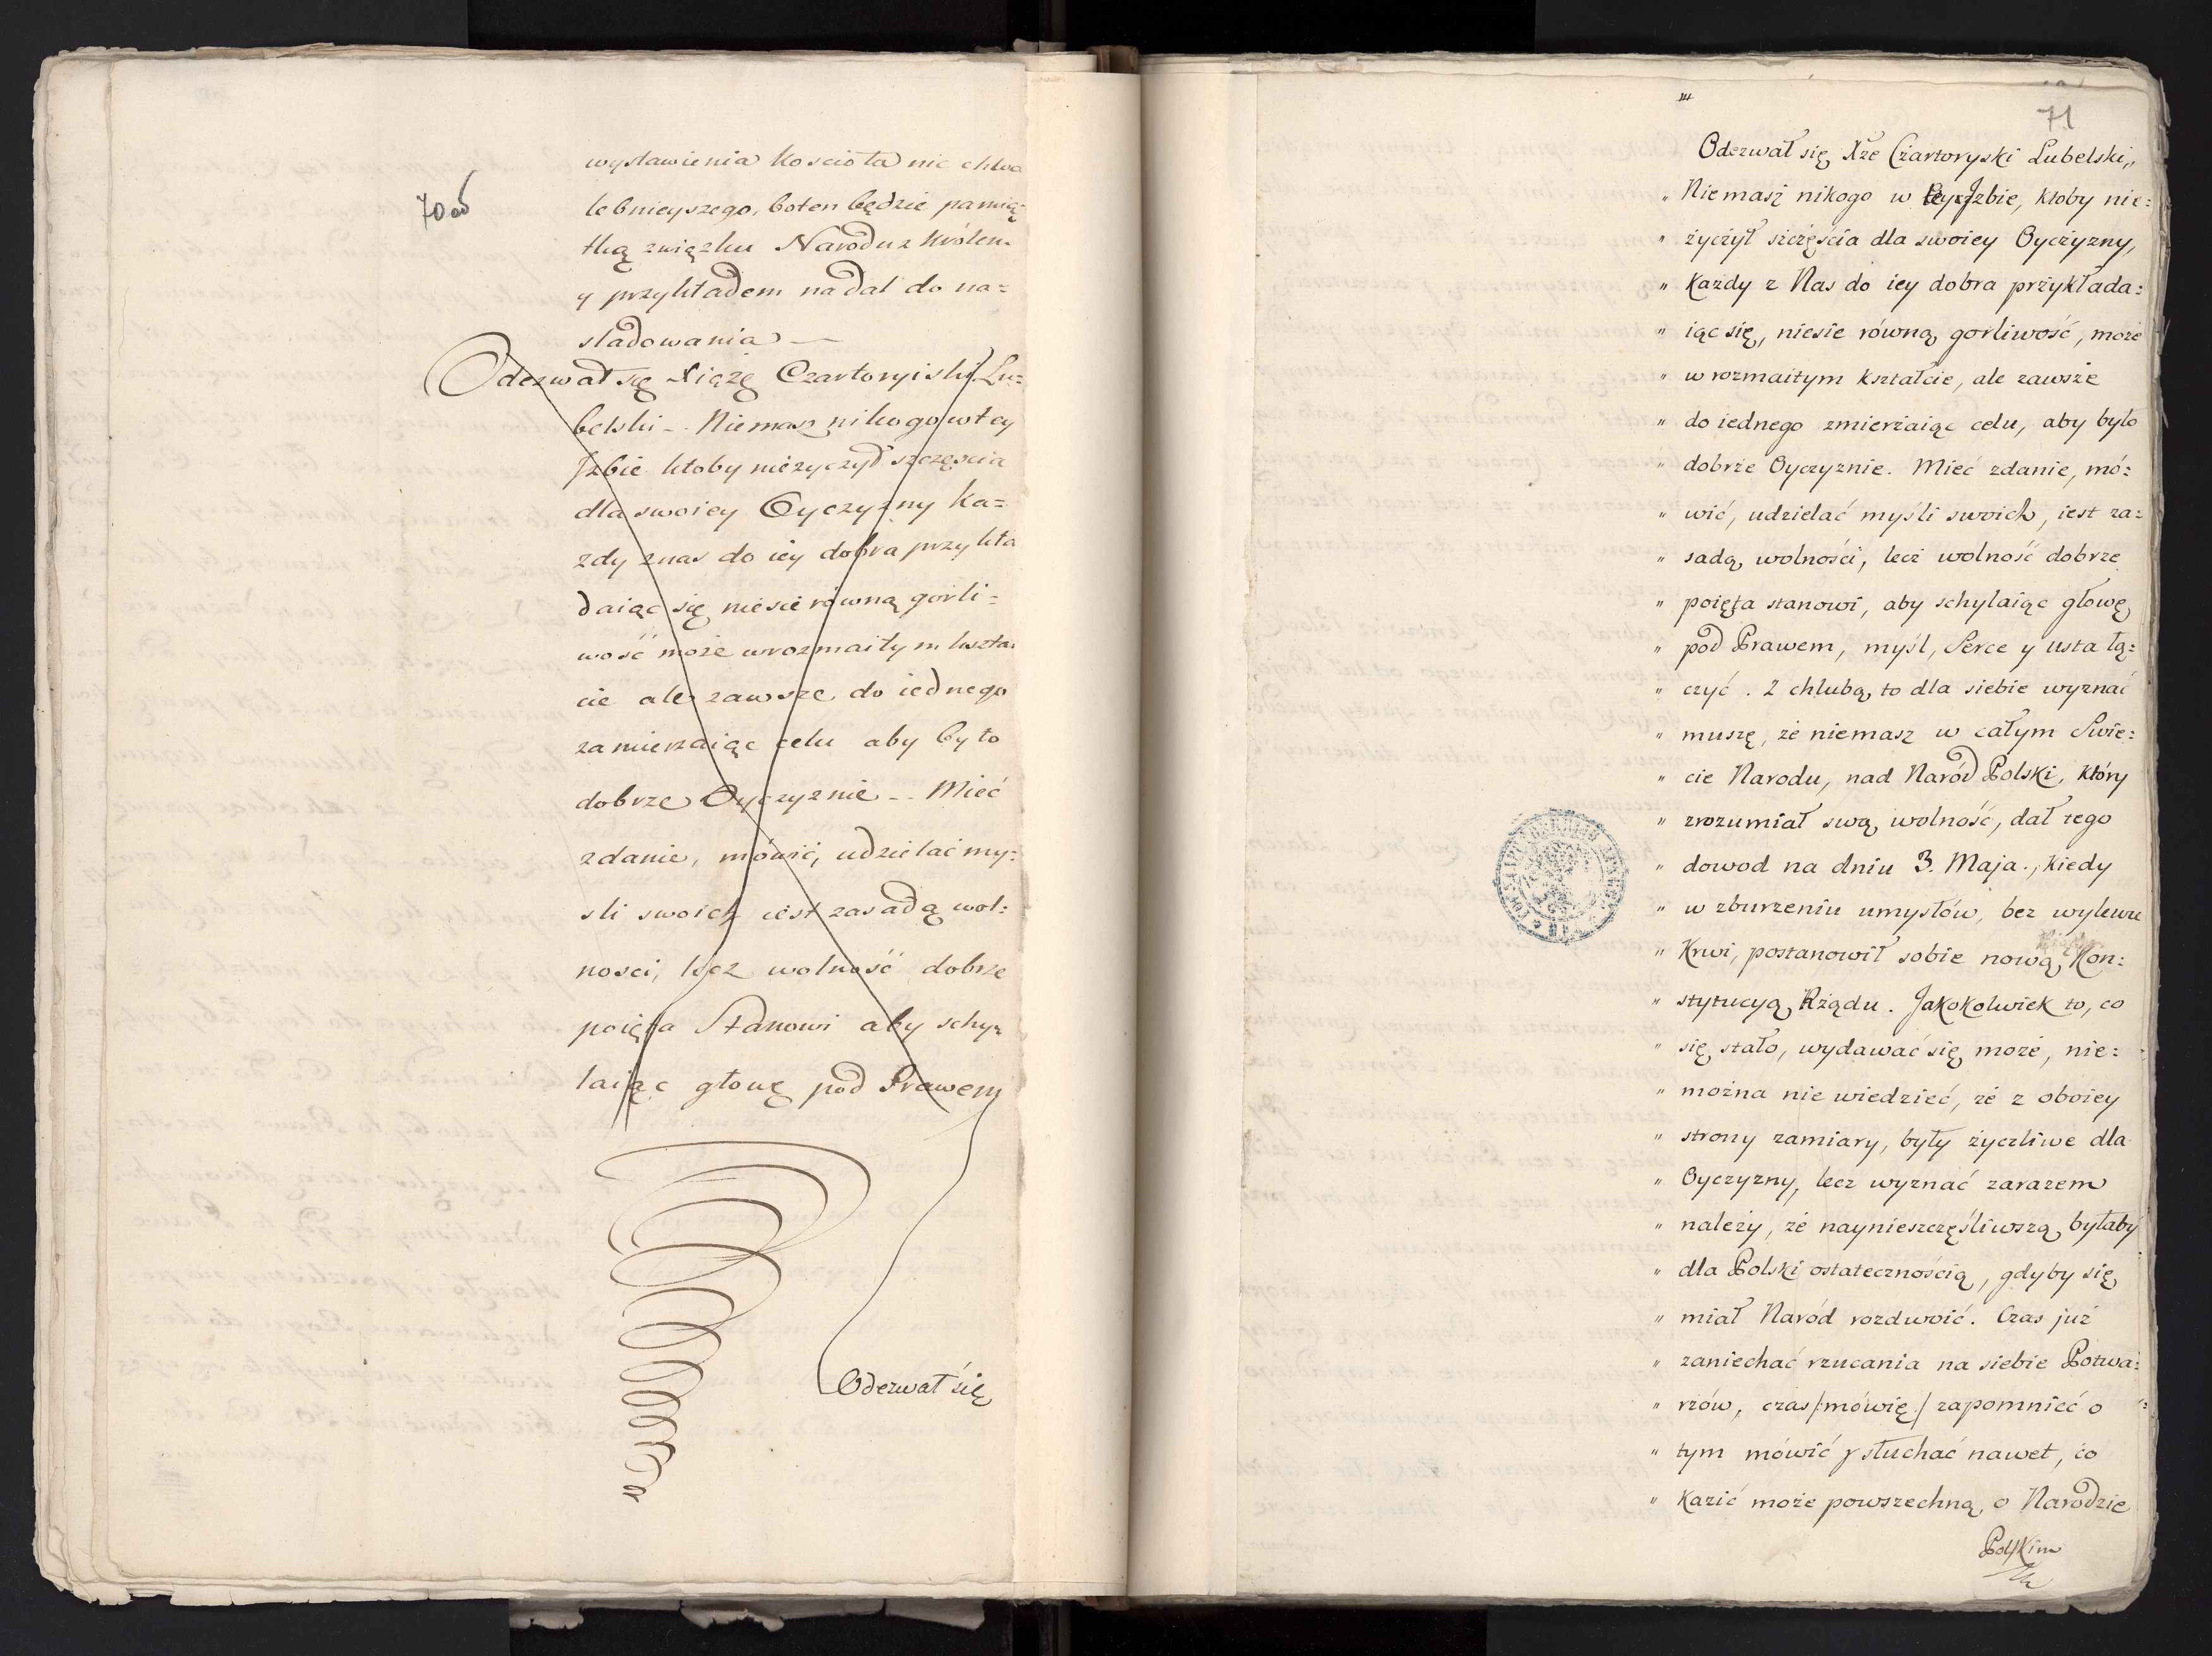 70ob
wystawienia Koscioła nic chwa
lebnieyszego, boten będzie pamią=
tką związku Narodu z Królem
y przykładem nadal do na=
sladowania —
Odezwał się Xiążę Czartoryiski Lu=
belski -. Niemasz nikogo wtey
Jzbie ktoby nieżyczył szczęscia
dla swoiey Oyczyzny ka=
zdy znas do iey dobra przykła
daiąc się niesie równą gorli=
wość może wrozmaitym kszta.
cie ale zawsze do iednego
zamierzaiąc celu aby było
dobrze Oyczyznie -. Mieć
zdanie, mówić, udzielać my=
sli swoich iest zasadą wol=
nosci, lecz wolność dobrze
poięta Stanowi aby schy=
laiąc głowę pod Prawem
Odezwał się
71
Odezwał się Xże Czartoryski Lubelski„
„ Niemasz nikogo w teyże Jzbie, ktoby nie=
„ życzył szczęścia dla swoiey Oyczyzny,
„ Każdy z Nas do iey dobra przykłada=
„ iąc się, niesie równą gorliwość, może
„ w rozmaitym kształcie, ale zawsze
„ do iednego zmierzaiąc celu, aby było
„ dobrze Oyczyznie. Mieć zdanie, mó=
„ wić, udzielać myśli swoich, iest za=
„ sadą wolności, lecz wolność dobrze
„ poięta stanowi, aby schylaiąc głowę
„ pod Prawem, myśl, Serce y usta łą=
„ czyć. Z chlubą to dla siebie wyznać
„ muszę, że niemasz w całym Swie=
„ cie Narodu, nad Naród Polski, który
„ zrozumiał swą wolność, dał tego
„ dowod na dniu 3. Maja., kiedy
„ w zburzeniu umysłów, bez wylewu
„ Krwi, postanowił sobie nową Kon=
„ stytucyą Rządu. Jakokolwiek to, co
„ się stało, wydawać się może, nie=
„ można nie wiedzieć, że z oboiey
„ strony zamiary, były życzliwe dla
„ Oyczyzny, lecz wyznać zarazem
„ należy, że naynieszczęśliwszą byłaby
„ dla Polski ostatecznością, gdyby się
„ miał Naród rozdwoić. Czas już
„ zaniechać rzucania na siebie Potwa=
„ rzów, czas /:mówię:/ zapomnieć o
„ tym mówić y słuchać nawet, co
„ Kazić może powszechną, o Narodzie
Polskim